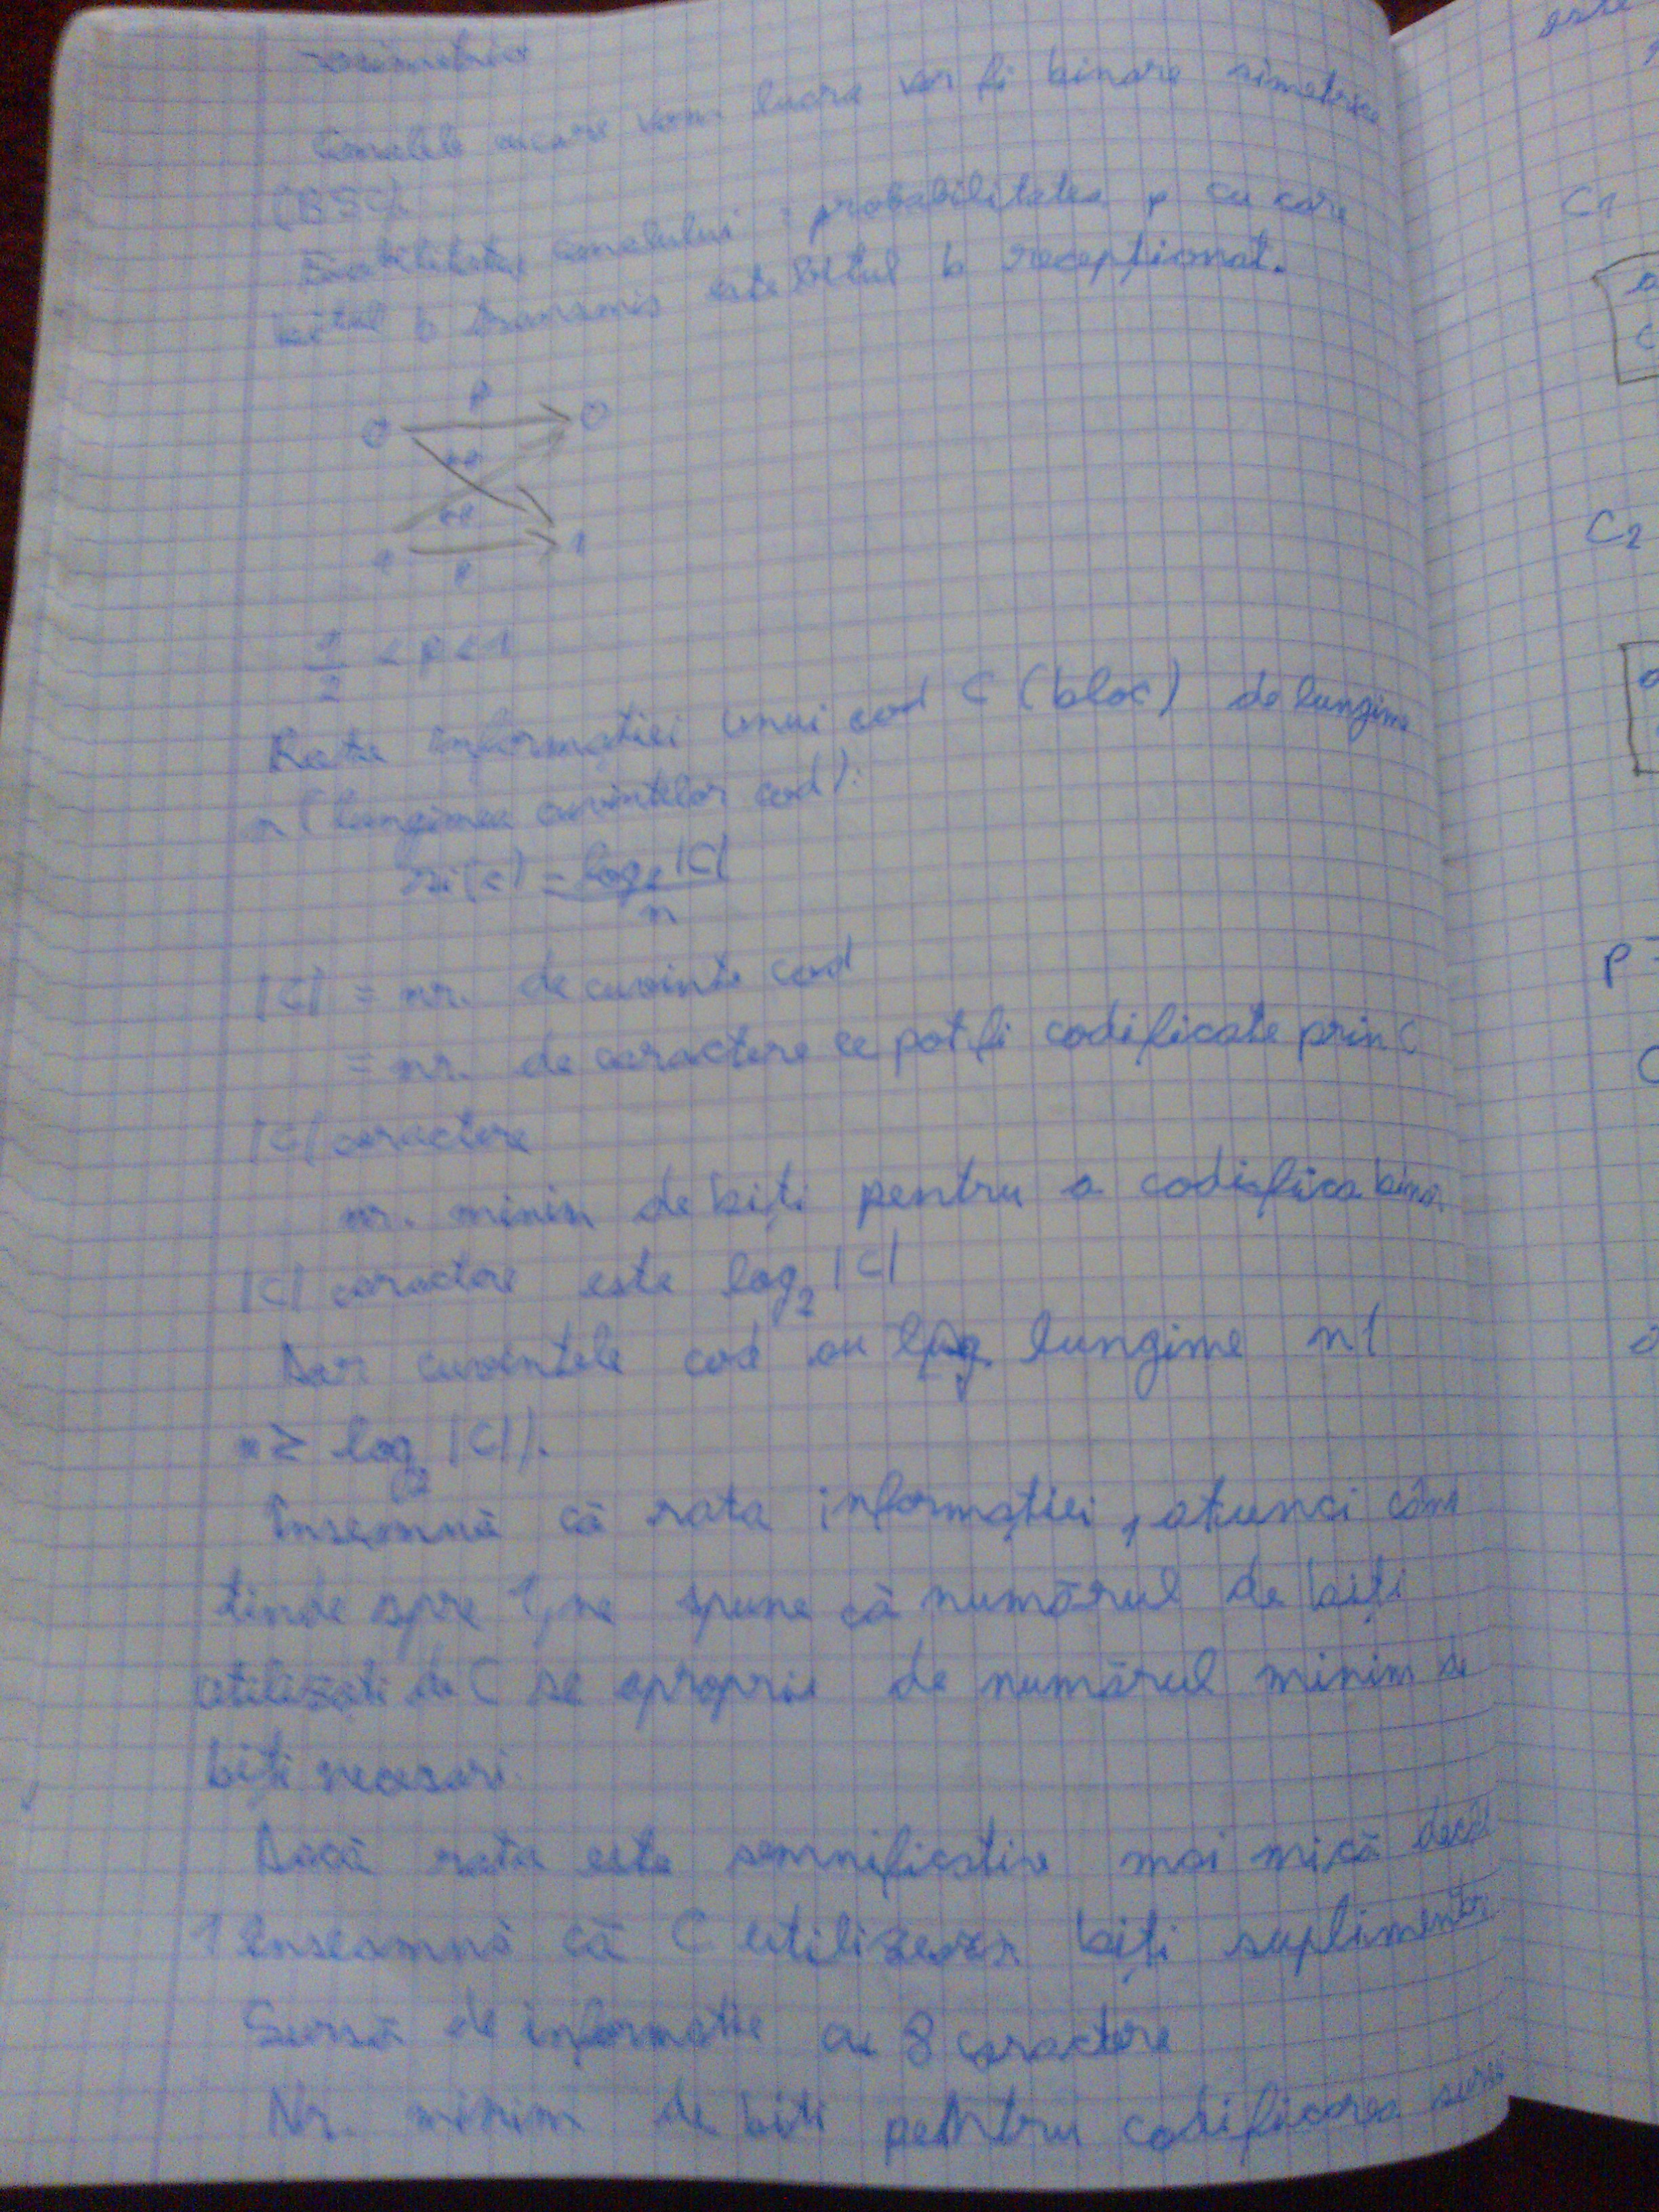 Canalele cu care vom lucra vor fi binare simetrice
(BSC).
Fiabilitatea canalului : probabilitatea p cu care
bitul b transmis este bitul b recepționat.
p
0 0
1-p
1-p
1 1
p
1/2 < p < 1
Rata informației unui cod C (bloc) de lungime
n (lungimea cuvintelor cod):
ri(C) = log₂|C| / n
|C| = nr. de cuvinte cod
= nr. de caractere ce pot fi codificate prin C
|C| caractere
nr. minim de biți pentru a codifica binar
|C| caractere este log₂ |C|
Dar cuvintele cod au lungime n (
n ≥ log₂ |C|).
Înseamnă că rata informației, atunci când
tinde spre 1, ne spune că numărul de biți
utilizați de C se apropie de numărul minim de
biți necesari.
Dacă rata este semnificativ mai mică decât
1 înseamnă că C utilizează biți suplimentari
Sursă de informație cu 8 caractere
Nr. minim de biți pentru codificarea sursei
C1
C2
p =